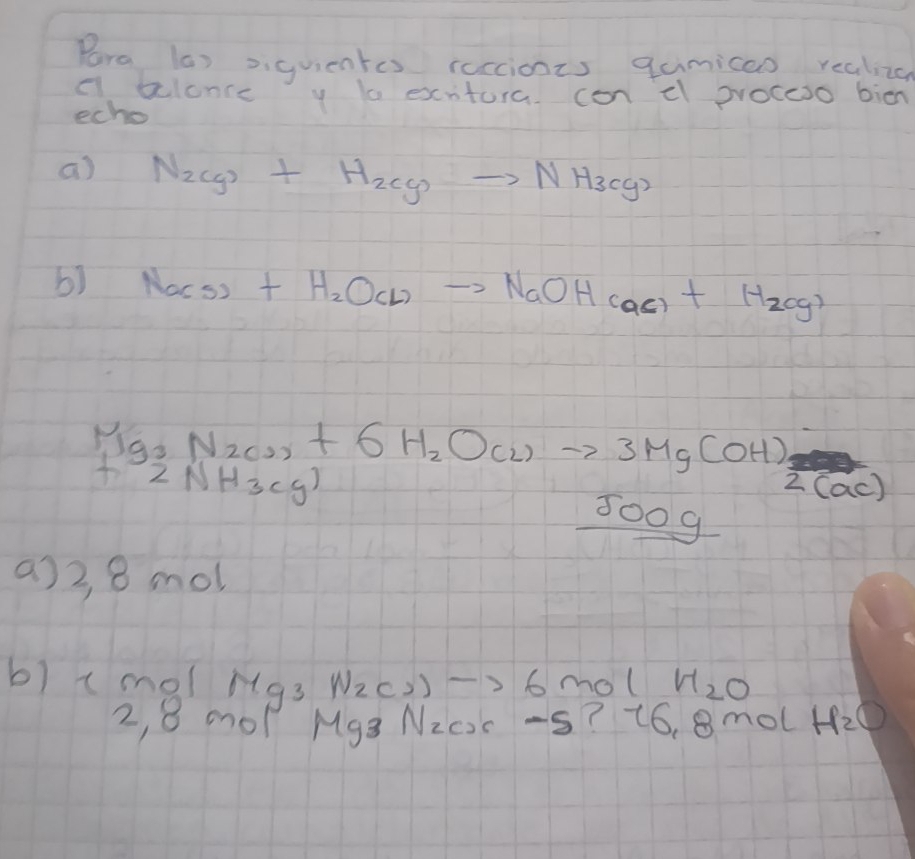 Para las siguientes racciones quimicas realizar
el balance y la escritura con el proceso bien
echo
a) N2(g) + H2(g) -> NH3(g)
b) Na(s) + H2O(L) -> NaOH (ac) + H2(g)
Mg3 N2(s) + 6 H2O(L) -> 3Mg(OH)
+ 2 NH3(g) 2 (ac)
500g
a) 2,8 mol
b) 1 mol Mg3 N2(s) -> 6 mol H2O
2,8 mol Mg3 N2(s -s? 16,8 mol H2O